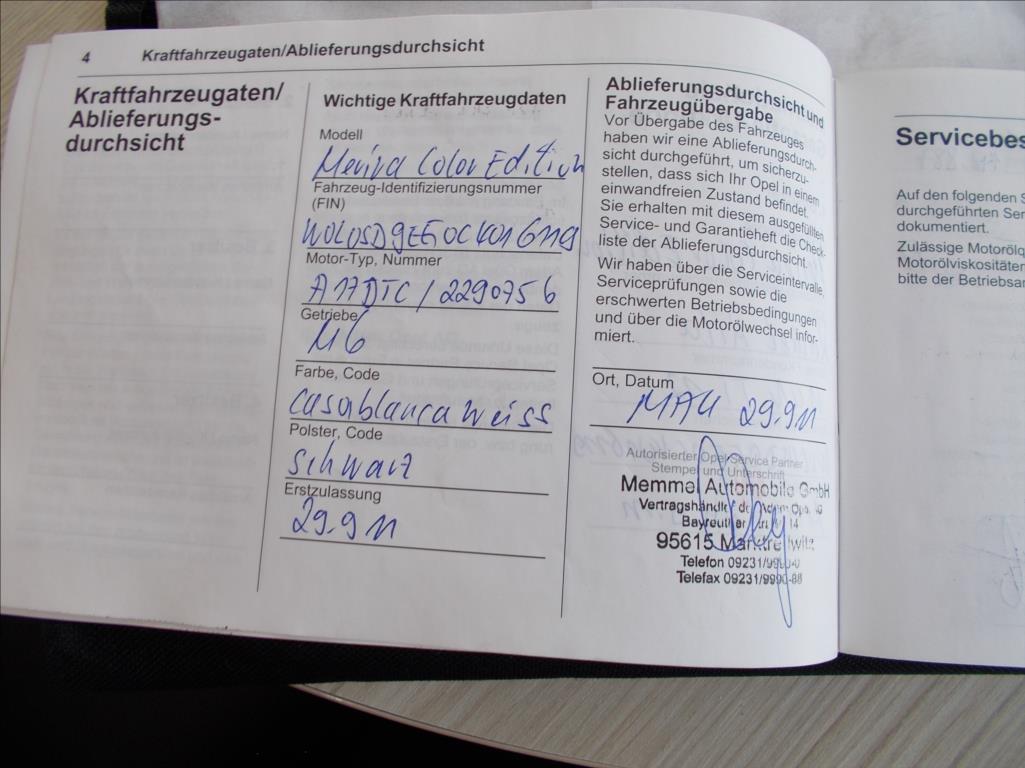 4 Kraftfahrzeugaten/Ablieferungsdurchsicht
Kraftfahrzeugaten/
Ablieferungs-
durchsicht
Wichtige Kraftfahrzeugdaten
Modell
Meriva Color Edition
Fahrzeug-Identifizierungsnummer
(FIN)
W0L0SD9EEOC4016119
Motor-Typ, Nummer
A17DTC / 2290756
Getriebe
M6
Farbe, Code
Casablanca Weiss
Polster, Code
Schwarz
Erstzulassung
29.9 11
Ablieferungsdurchsicht und
Fahrzeugübergabe
Vor Übergabe des Fahrzeuges
haben wir eine Ablieferungsdurch-
sicht durchgeführt, um sicherzu-
stellen, dass sich Ihr Opel in einem
einwandfreien Zustand befindet.
Sie erhalten mit diesem ausgefüllten
Service- und Garantieheft die Check-
liste der Ablieferungsdurchsicht.
Wir haben über die Serviceintervalle,
Serviceprüfungen sowie die
erschwerten Betriebsbedingungen
und über die Motorölwechsel infor-
miert.
Ort, Datum
MAK 29.9 11
Autorisierter Opel Service Partner
Stempel und Unterschrift
Memmel Automobile GmbH
Vertragshändler der Adam Opel
Bayreuther 14
95615 Marktredwitz
Telefon 09231/9990-0
Telefax 09231/9990-88
Servicebes
Auf den folgenden S
durchgeführten Ser
dokumentiert.
Zulässige Motorölq
Motorölviskositäten
bitte der Betriebsan